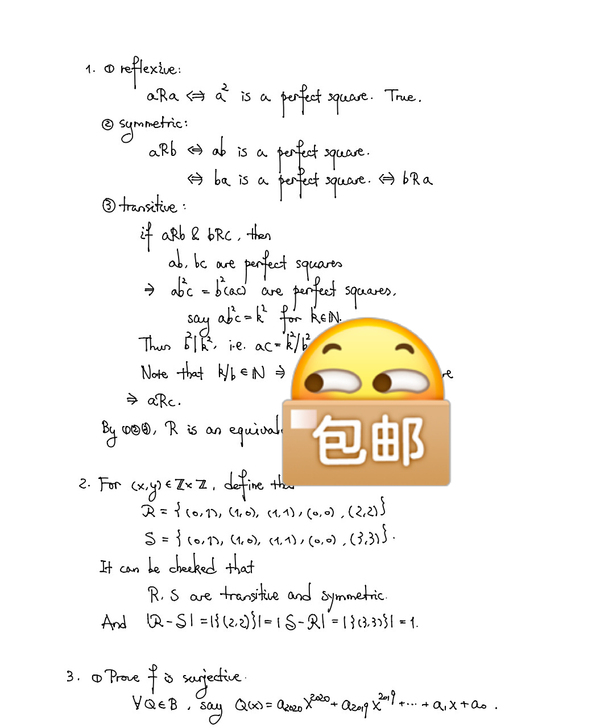 1. ① reflexive:
aRa ⇔ a² is a perfect square. True.
② symmetric:
aRb ⇔ ab is a perfect square.
⇔ ba is a perfect square. ⇔ bRa
③ transitive:
if aRb & bRc, then
ab, bc are perfect squares
⇒ ab²c = b²(ac) are perfect squares,
say ab²c = k² for k∈ℕ.
Thus b²|k², i.e. ac = k²/b²
Note that k/b ∈ ℕ ⇒
⇒ aRc.
By ①②③, R is an
包邮
2. For (x,y) ∈ ℤ×ℤ, define
R = {(0,1), (1,0), (1,1), (0,0), (2,2)}
S = {(0,1), (1,0), (1,1), (0,0), (3,3)}.
It can be checked that
R, S are transitive and symmetric.
And |R-S| = |{(2,2)}| = |S-R| = |{(3,3)}| = 1.
3. ① Prove f is surjective.
∀Q∈B, say Q(x) = a₂₀₂₀x²⁰²⁰ + a₂₀₁₉x²⁰¹⁹ + ... + a₁x + a₀.